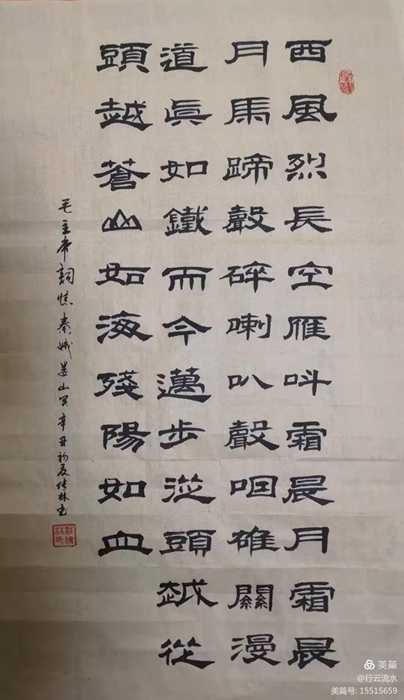 西風烈長空雁叫霜晨月霜晨
月馬蹄聲碎喇叭聲咽雄關漫
道眞如鐵而今邁步從頭越從
頭越蒼山如海殘陽如血
毛主席詞憶秦娥婁山关辛丑初夏
美篇
@行云流水
美篇号: 15515659